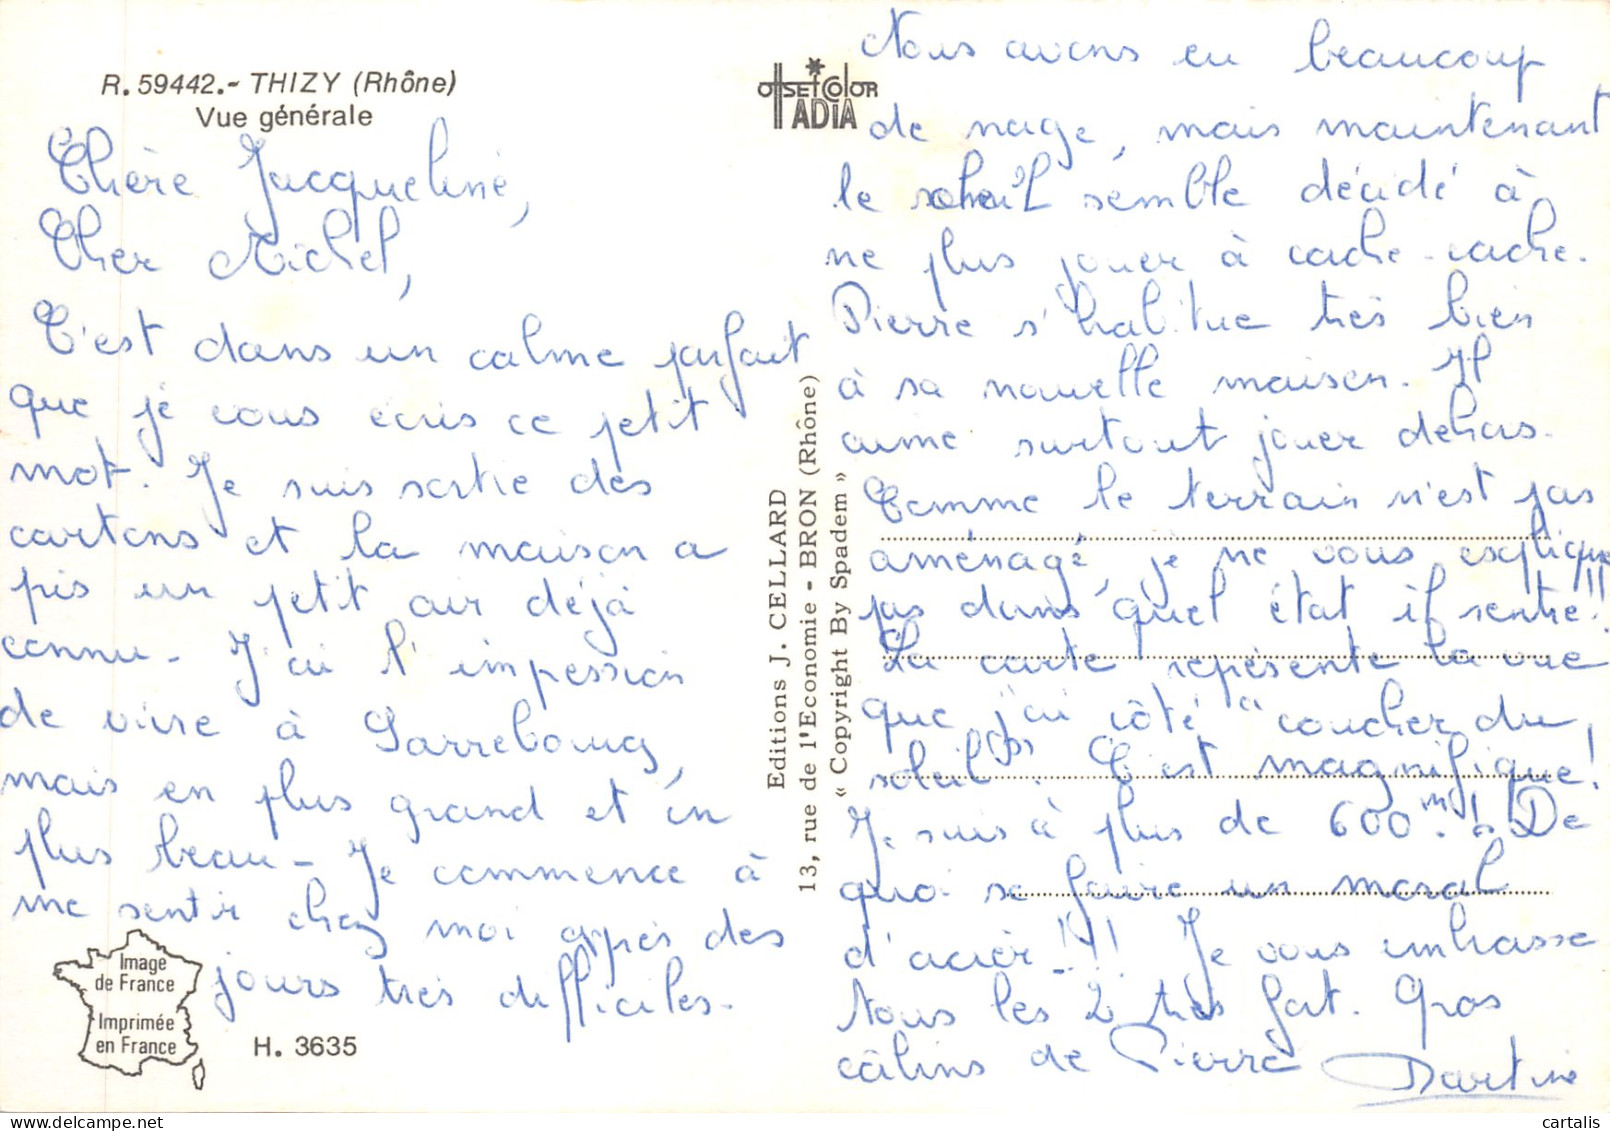 R. 59442.- THIZY (Rhône)
Vue générale
Chère Jacqueline,
Cher Michel,
C'est dans un calme parfait
que je vous écris ce petit
mot. Je suis sortie des
cartons et la maison a
pis un petit air déjà
connu - J'ai l'impession
de vivre à Sarrebourg,
mais en plus grand et en
plus beau - Je commence à
me sentir chez moi après des
jours très difficiles.
Image
de France
Imprimée
en France
H. 3635
OffsetColor
ADIA
Editions J. CELLARD
13, rue de l'Economie - BRON (Rhône)
« Copyright By Spadem »
Nous avons eu beaucoup
de nage, mais maintenant
le soleil semble décidé à
ne plus jouer à cache-cache.
Pierre s'habitue très bien
à sa nouvelle maison. Il
aime surtout jouer dehors.
Comme le terrain n'est pas
aménagé, je ne vous explique
pas dans quel état il rentre!!
La carte représente la vue
que j'ai côté "coucher du
soleil". C'est magnifique!
Je suis à plus de 600 m! De
quoi se faire un moral
d'acier!!! Je vous embrasse
tous les 2 très fort. Gros
câlins de Pierre
Martine
cartalis